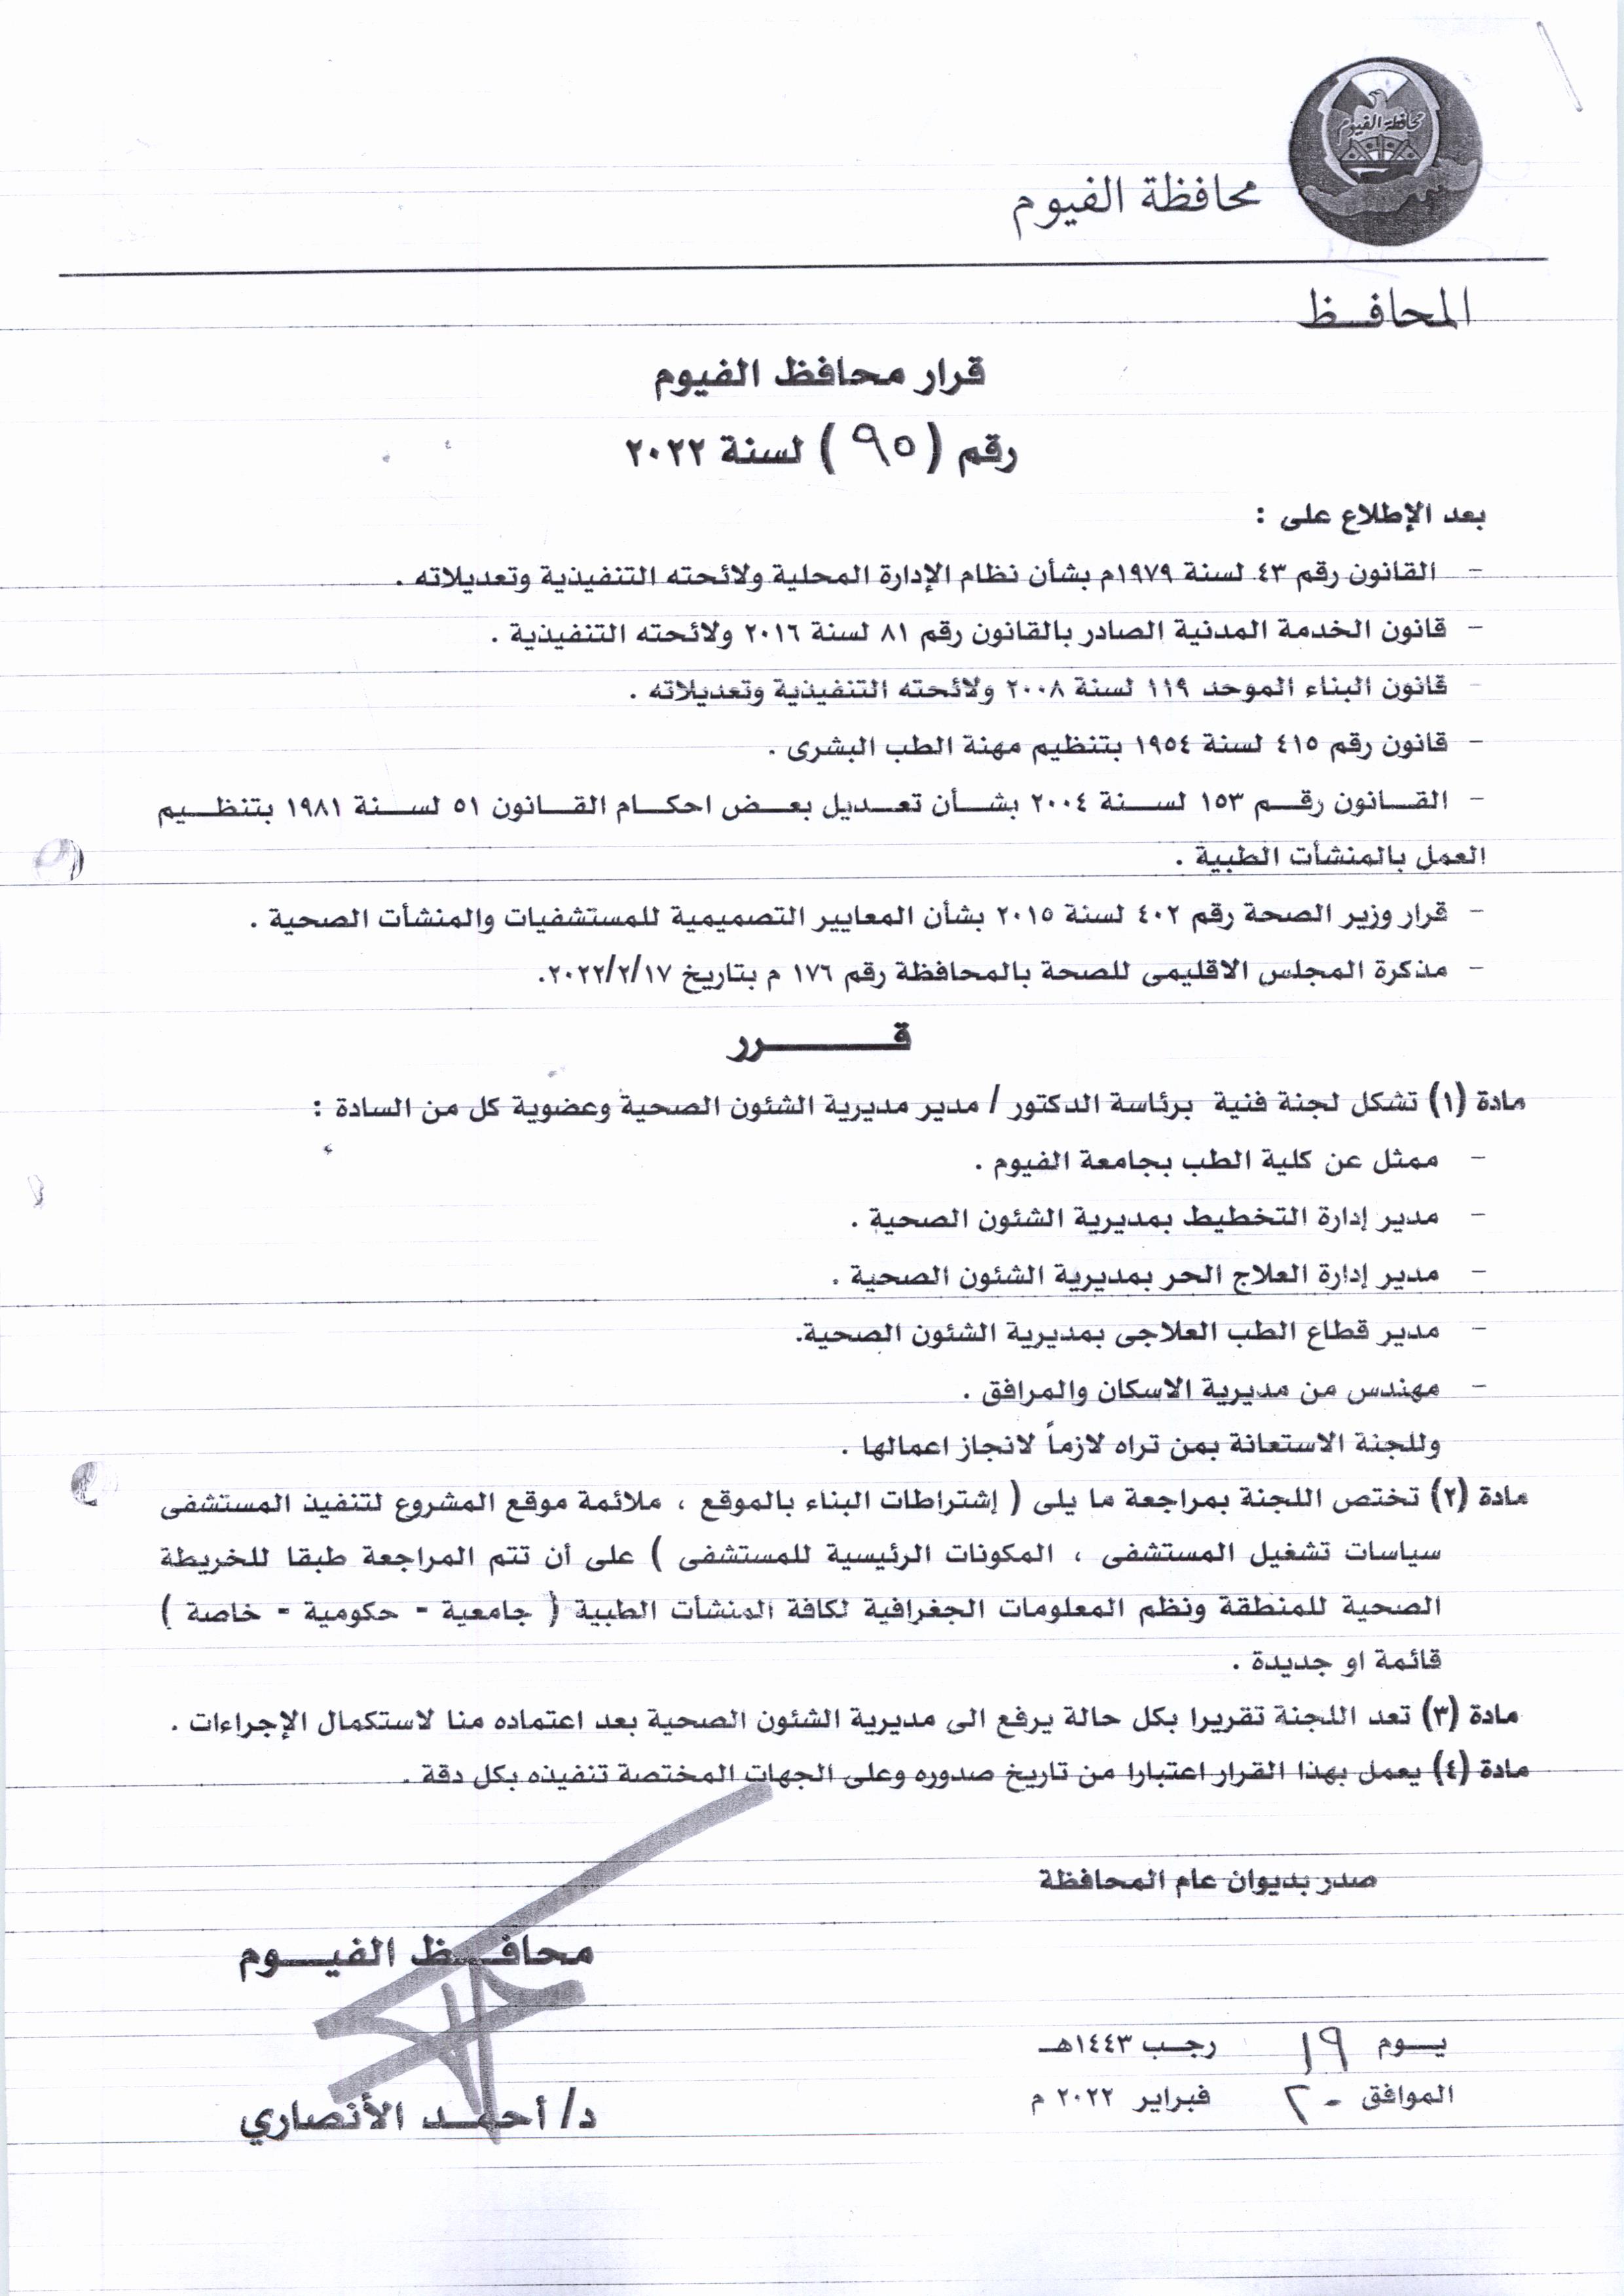 محافظة الفيوم
محافظة الفيوم
المحافظ
قرار محافظ الفيوم
رقم (٩٥) لسنة ٢٠٢٢
بعد الإطلاع على :
- القانون رقم ٤٣ لسنة ١٩٧٩م بشأن نظام الإدارة المحلية ولائحته التنفيذية وتعديلاته .
- قانون الخدمة المدنية الصادر بالقانون رقم ٨١ لسنة ٢٠١٦ ولائحته التنفيذية .
- قانون البناء الموحد ١١٩ لسنة ٢٠٠٨ ولائحته التنفيذية وتعديلاته .
- قانون رقم ٤١٥ لسنة ١٩٥٤ بتنظيم مهنة الطب البشرى .
- القانون رقم ١٥٣ لسنة ٢٠٠٤ بشأن تعديل بعض احكام القانون ٥١ لسنة ١٩٨١ بتنظيم
العمل بالمنشأت الطبية .
- قرار وزير الصحة رقم ٤٠٢ لسنة ٢٠١٥ بشأن المعايير التصميمية للمستشفيات والمنشأت الصحية .
- مذكرة المجلس الاقليمى للصحة بالمحافظة رقم ١٧٦ م بتاريخ ٢٠٢٢/٢/١٧.
قرر
مادة (١) تشكل لجنة فنية برئاسة الدكتور / مدير مديرية الشئون الصحية وعضوية كل من السادة :
- ممثل عن كلية الطب بجامعة الفيوم .
- مدير إدارة التخطيط بمديرية الشئون الصحية .
- مدير إدارة العلاج الحر بمديرية الشئون الصحية .
- مدير قطاع الطب العلاجى بمديرية الشئون الصحية.
- مهندس من مديرية الاسكان والمرافق .
وللجنة الاستعانة بمن تراه لازماً لانجاز اعمالها .
مادة (٢) تختص اللجنة بمراجعة ما يلى ( إشتراطات البناء بالموقع ، ملائمة موقع المشروع لتنفيذ المستشفى
سياسات تشغيل المستشفى ، المكونات الرئيسية للمستشفى ) على أن تتم المراجعة طبقا للخريطة
الصحية للمنطقة ونظم المعلومات الجغرافية لكافة المنشأت الطبية ( جامعية - حكومية - خاصة )
قائمة او جديدة .
مادة (٣) تعد اللجنة تقريرا بكل حالة يرفع الى مديرية الشئون الصحية بعد اعتماده منا لاستكمال الإجراءات .
مادة (٤) يعمل بهذا القرار اعتبارا من تاريخ صدوره وعلى الجهات المختصة تنفيذه بكل دقة .
صدر بديوان عام المحافظة
محافظ الفيوم
يوم ١٩ رجب ١٤٤٣هـ
الموافق ٢٠ فبراير ٢٠٢٢ م
د/ أحمد الأنصاري